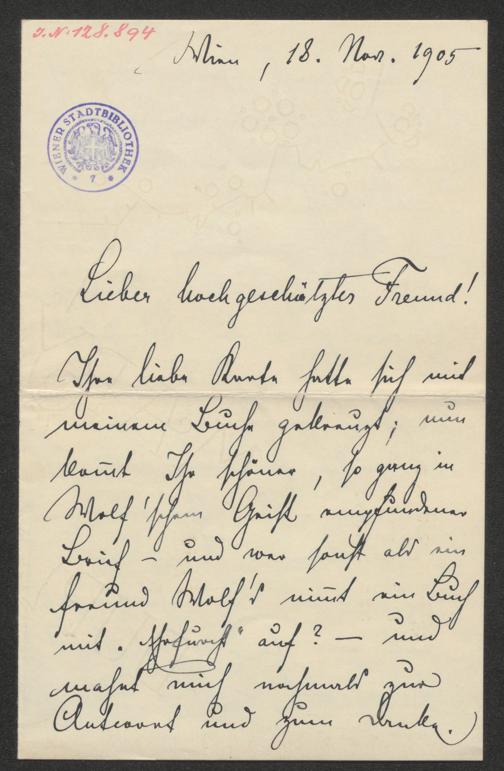 I.N. 128.894
Wien, 18. Nov. 1905
WIENER STADTBIBLIOTHEK
* 7 *
Lieber hochgeschätzter Freund!
Ihre liebe Karte hatte sich mit
meinem Buche gekreuzt; nun
kom̄t Ihr schöner, so ganz in
Wolf'schem Geist empfundener
Brief – und wer sonst als ein
Freund Wolf's nim̄t ein Buch
mit „Ehrfurcht" auf? – und
mahnt mich nochmals zur
Antwort und zum Danke.